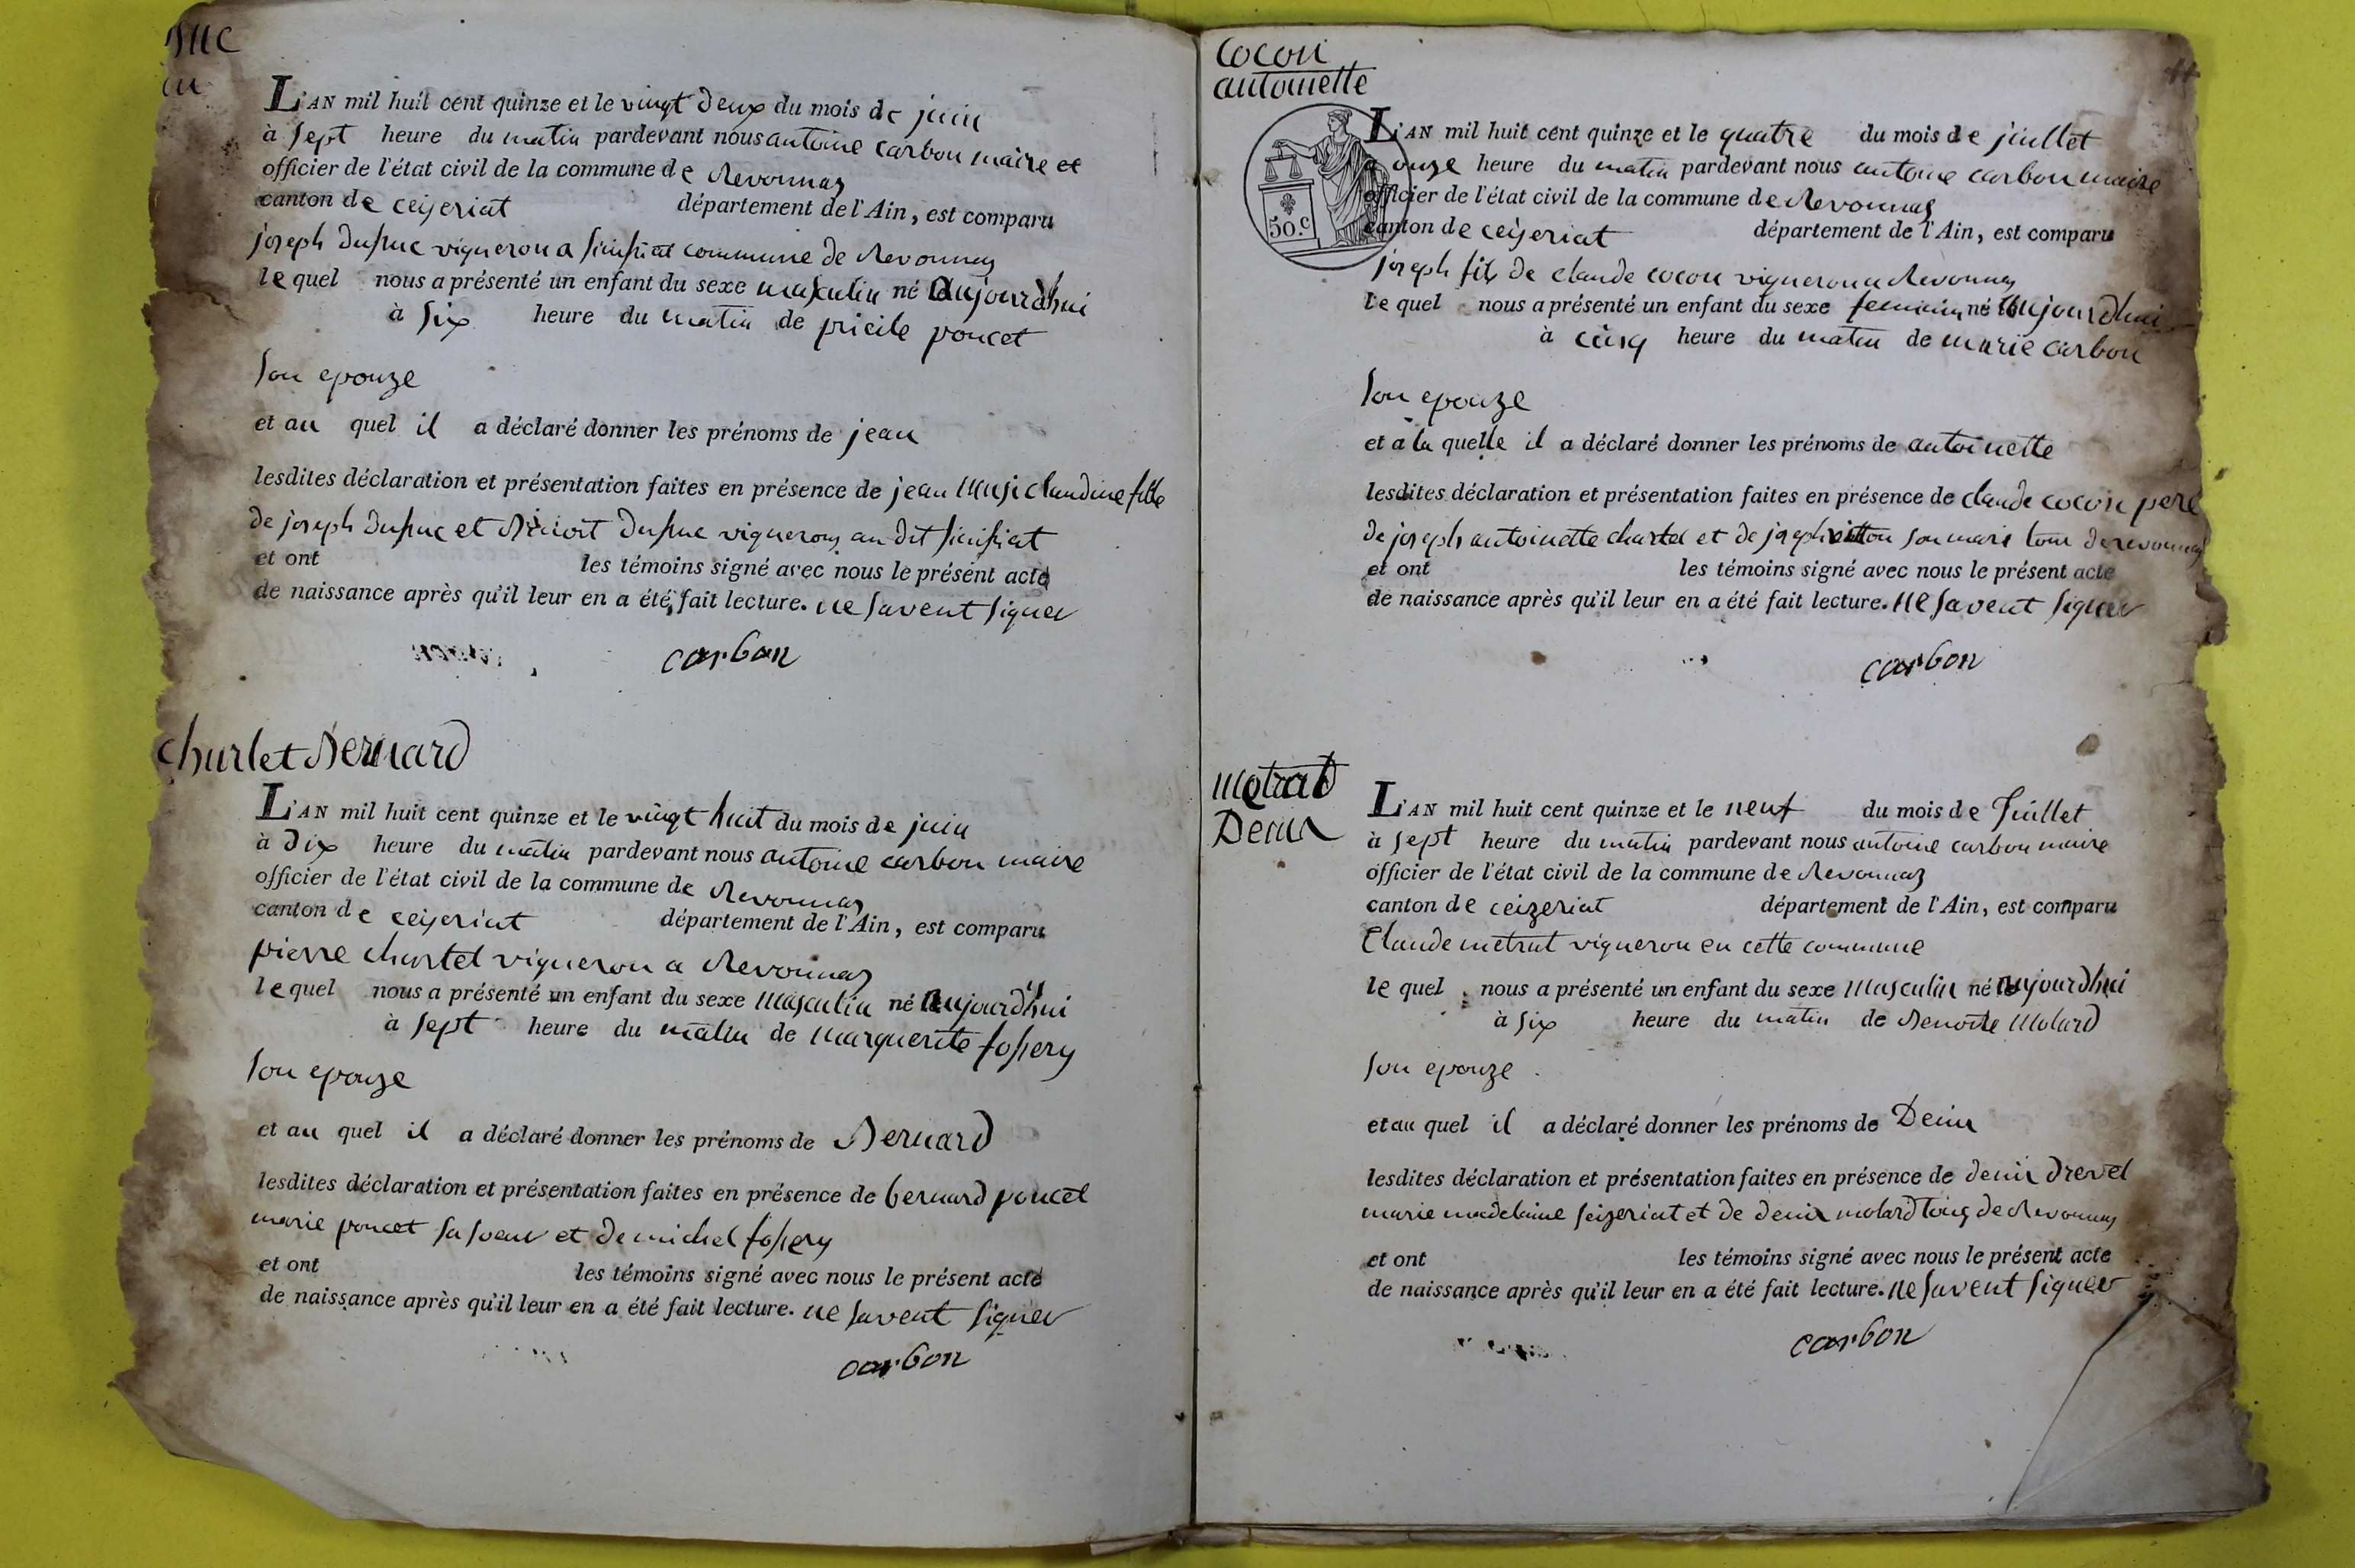 L'AN mil huit cent quinze et le vingt deux du mois de juin
à sept heure du matin pardevant nous antoine carbon maire et
officier de l'état civil de la commune de Revonnas
canton de ceyzeriat département de l'Ain, est comparu
joseph dupuc vigneron a simsiat commune de Revonnas
le quel nous a présenté un enfant du sexe masculin né aujourdhui
à six heure du matin de pricile poncet
son epouze
et au quel il a déclaré donner les prénoms de jean
lesdites déclaration et présentation faites en présence de jean claudine fille
de joseph dupuc et Benoit dupuc vignerons au dit
et ont les témoins signé avec nous le présent acte
de naissance après qu'il leur en a été fait lecture. ne savent signer
carbon
Churlet Bernard
L'AN mil huit cent quinze et le vingt huit du mois de juin
à dix heure du matin pardevant nous antoine carbon maire
officier de l'état civil de la commune de Revonnas
canton de ceyzeriat département de l'Ain, est comparu
pierre churlet vigneron a Revonnas
le quel nous a présenté un enfant du sexe masculin né aujourd'hui
à sept heure du matin de marguerite fossery
son epouze
et au quel il a déclaré donner les prénoms de Bernard
lesdites déclaration et présentation faites en présence de bernard poncet
marie poncet sa soeur et de michel fossery
et ont les témoins signé avec nous le présent acte
de naissance après qu'il leur en a été fait lecture. ne savent signer
carbon
Cocon
antoinette
50.c
L'AN mil huit cent quinze et le quatre du mois de juillet
à onze heure du matin pardevant nous antoine carbon maire
officier de l'état civil de la commune de Revonnas
canton de ceyzeriat département de l'Ain, est comparu
joseph fils de claude cocon vigneron a Revonnas
le quel nous a présenté un enfant du sexe feminin né aujourdhui
à cinq heure du matin de marie carbon
son epouze
et a la quelle il a déclaré donner les prénoms de antoinette
lesdites déclaration et présentation faites en présence de claude cocon pere
de joseph antoinette chartel et de joseph vitton son mari tous de revonnas
et ont les témoins signé avec nous le présent acte
de naissance après qu'il leur en a été fait lecture. ne savent signer
carbon
metrat
Denis
L'AN mil huit cent quinze et le neuf du mois de Juillet
à sept heure du matin pardevant nous antoine carbon maire
officier de l'état civil de la commune de Revonnas
canton de ceizeriat département de l'Ain, est comparu
Claude metrat vigneron en cette commune
le quel nous a présenté un enfant du sexe masculin né aujourdhui
à six heure du matin de Benoite Molard
son epouze
et au quel il a déclaré donner les prénoms de Denis
lesdites déclaration et présentation faites en présence de denis drevet
marie madelaine seizeriat et de denis molard tous de Revonnas
et ont les témoins signé avec nous le présent acte
de naissance après qu'il leur en a été fait lecture. ne savent signer
carbon